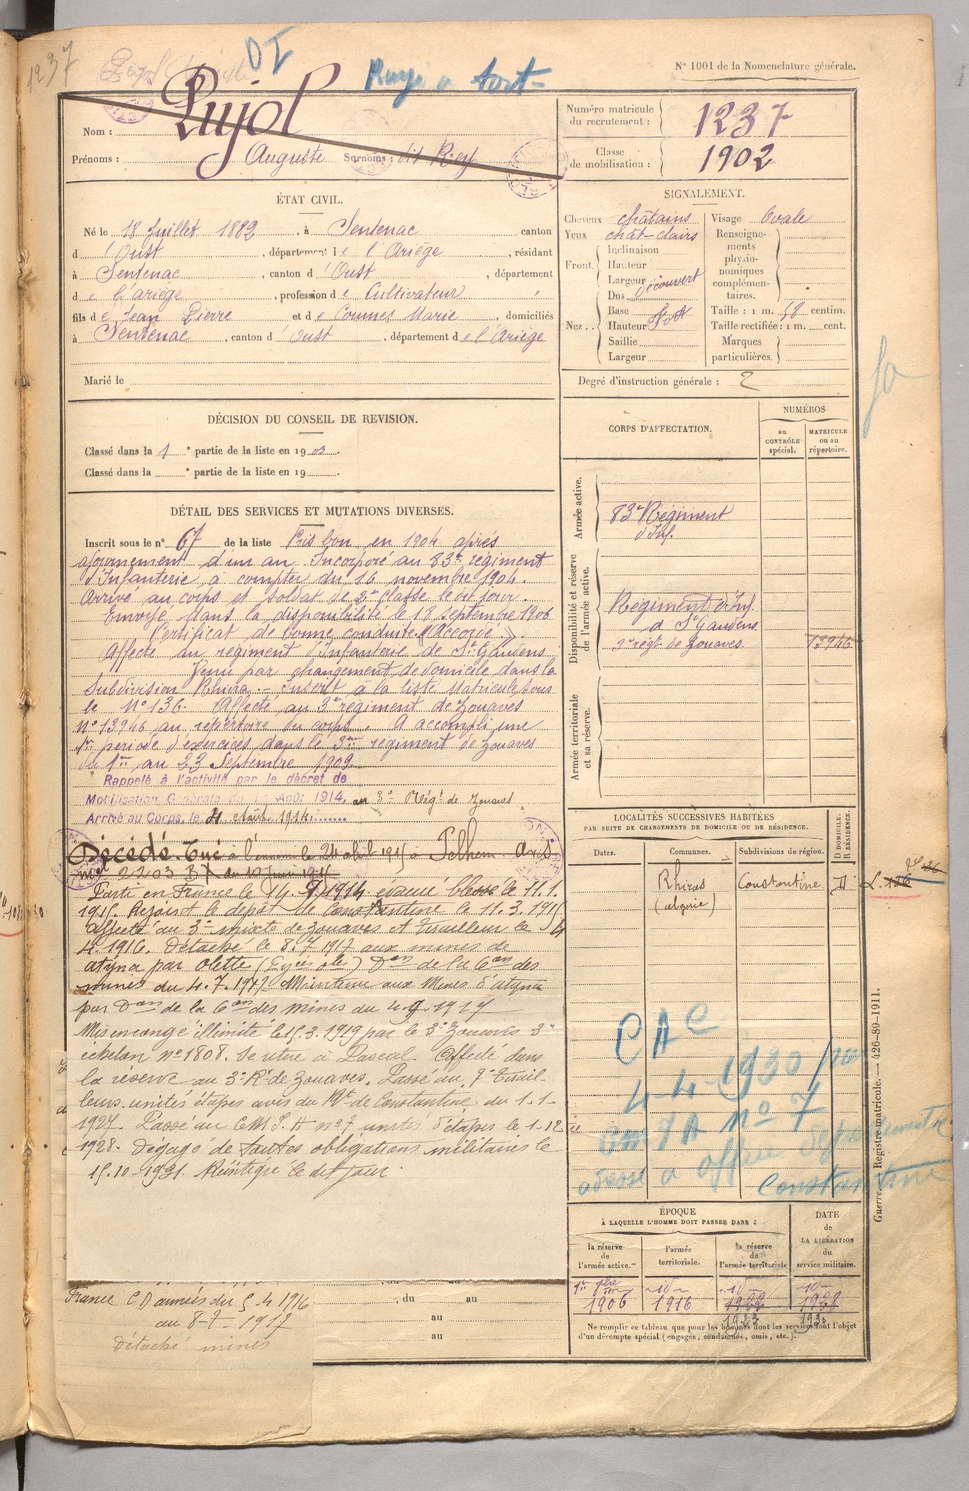 1237
DI
Rayé à tort
N° 1001 de la Nomenclature générale.
Nom : Pujol
Prénoms : Auguste Surnoms : dit Rey
Numéro matricule du recrutement : 1237
Classe de mobilisation : 1902
ÉTAT CIVIL.
Né le 18 Juillet 1882, à Sentenac canton
d'Oust, département de l'Ariège, résidant
à Sentenac, canton d'Oust, département
de l'ariège, profession de Cultivateur
fils de Jean Pierre et de Coumes Marie, domiciliés
à Sentenac, canton d'Oust, département de l'Ariège
Marié le
SIGNALEMENT.
Cheveux châtains
Yeux chat-clairs
Front. Inclinaison
Hauteur
Largeur découvert
Nez. Dos
Base
Hauteur fort
Saillie
Largeur
Visage Ovale
Renseigne-
ments
physio-
nomiques
complémen-
taires.
Taille : 1 m. 58 centim.
Taille rectifiée : 1 m. cent.
Marques
particulières.
Degré d'instruction générale : 2
DÉCISION DU CONSEIL DE REVISION.
Classé dans la 1e partie de la liste en 1903.
Classé dans la e partie de la liste en 19
CORPS D'AFFECTATION.
NUMÉROS
au CONTRÔLE spécial.
MATRICULE ou au répertoire.
Armée active.
83e Régiment
d'Inf.
Disponibilité et réserve de l'armée active.
Régiment d'Inf.
d St Gaudens
3e régt de Zouaves. 13946
Armée territoriale et sa réserve.
DÉTAIL DES SERVICES ET MUTATIONS DIVERSES.
Inscrit sous le n° 67 de la liste Pris bon en 1904 après
ajournement d'un an. Incorporé au 83e régiment
d'Infanterie à compter du 16 novembre 1904.
Arrivé au corps et soldat de 2e classe le dit jour.
Envoyé dans la disponibilité le 18 septembre 1906
Certificat de bonne conduite "Accordé".
Affecté au régiment d'Infanterie de St Gaudens
Venu par changement de domicile dans la
Subdivision Inscrit à la liste Matricule sous
le N° 136. Affecté au 3e régiment de Zouaves
N° 13946 au répertoire du corps. A accompli une
1re période d'exercices dans le 3me régiment de Zouaves
du 1er au 23 Septembre 1909.
Rappelé à l'activité par le décret de
Mobilisation Générale du Août 1914. au 3e Régt de Zouaves
Arrivé au Corps, le 4 Août 1914.
Décédé. Tué à l'ennemi le 24 avril 1915 à
2203
Parti en France le 14 9 1914 évacué blessé le 11.1.
1915. Rejoint le dépôt de Constantine le 11.3.1915
affecté au 3e mixte de zouaves et tirailleur le
4.1916. Détaché le 8.7.1917 aux mines de
atyna par Olette (Pyées ole) Don de la Con des
mines du 4.7.1917 Maintenu aux Mines d'atyna
par Don de la Con des mines du 4.9.1917
Mis en congé illimité le 15.3.1919 par le 3e Zouaves 3e
échelon n° 1808. Se retire à Pascal. Affecté dans
la réserve au 3e Rt de Zouaves. Passé au 7e Tirail-
leurs unités étapes du Rt de Constantine du 1-1-
1927. Passé au n° 7 unités d'étapes le 1-12
1928. Dégagé de toutes obligations militaires le
15.10.1931. Réintégré le dit jour.
LOCALITÉS SUCCESSIVES HABITÉES
PAR SUITE DE CHANGEMENTS DE DOMICILE OU DE RÉSIDENCE.
Dates. Communes. Subdivisions de région. D DOMICILE. R RÉSIDENCE.
Constantine D
(algérie)
CAC
4-4-1930
n° 7
adresse a office départemental
Constantine
ÉPOQUE
À LAQUELLE L'HOMME DOIT PASSER DANS :
la réserve de l'armée active.
l'armée territoriale.
la réserve de l'armée territoriale
DATE de LA LIBÉRATION du service militaire.
1906 1916
Ne remplir ce tableau que pour les hommes dont les services font l'objet
d'un décompte spécial (engagés, condamnés, omis, etc.).
France CD années du 5-4 1916
au 8-7-1917
Détaché mines
, du au
au
au
Guerre. Registre matricule. — 426-89-1911.